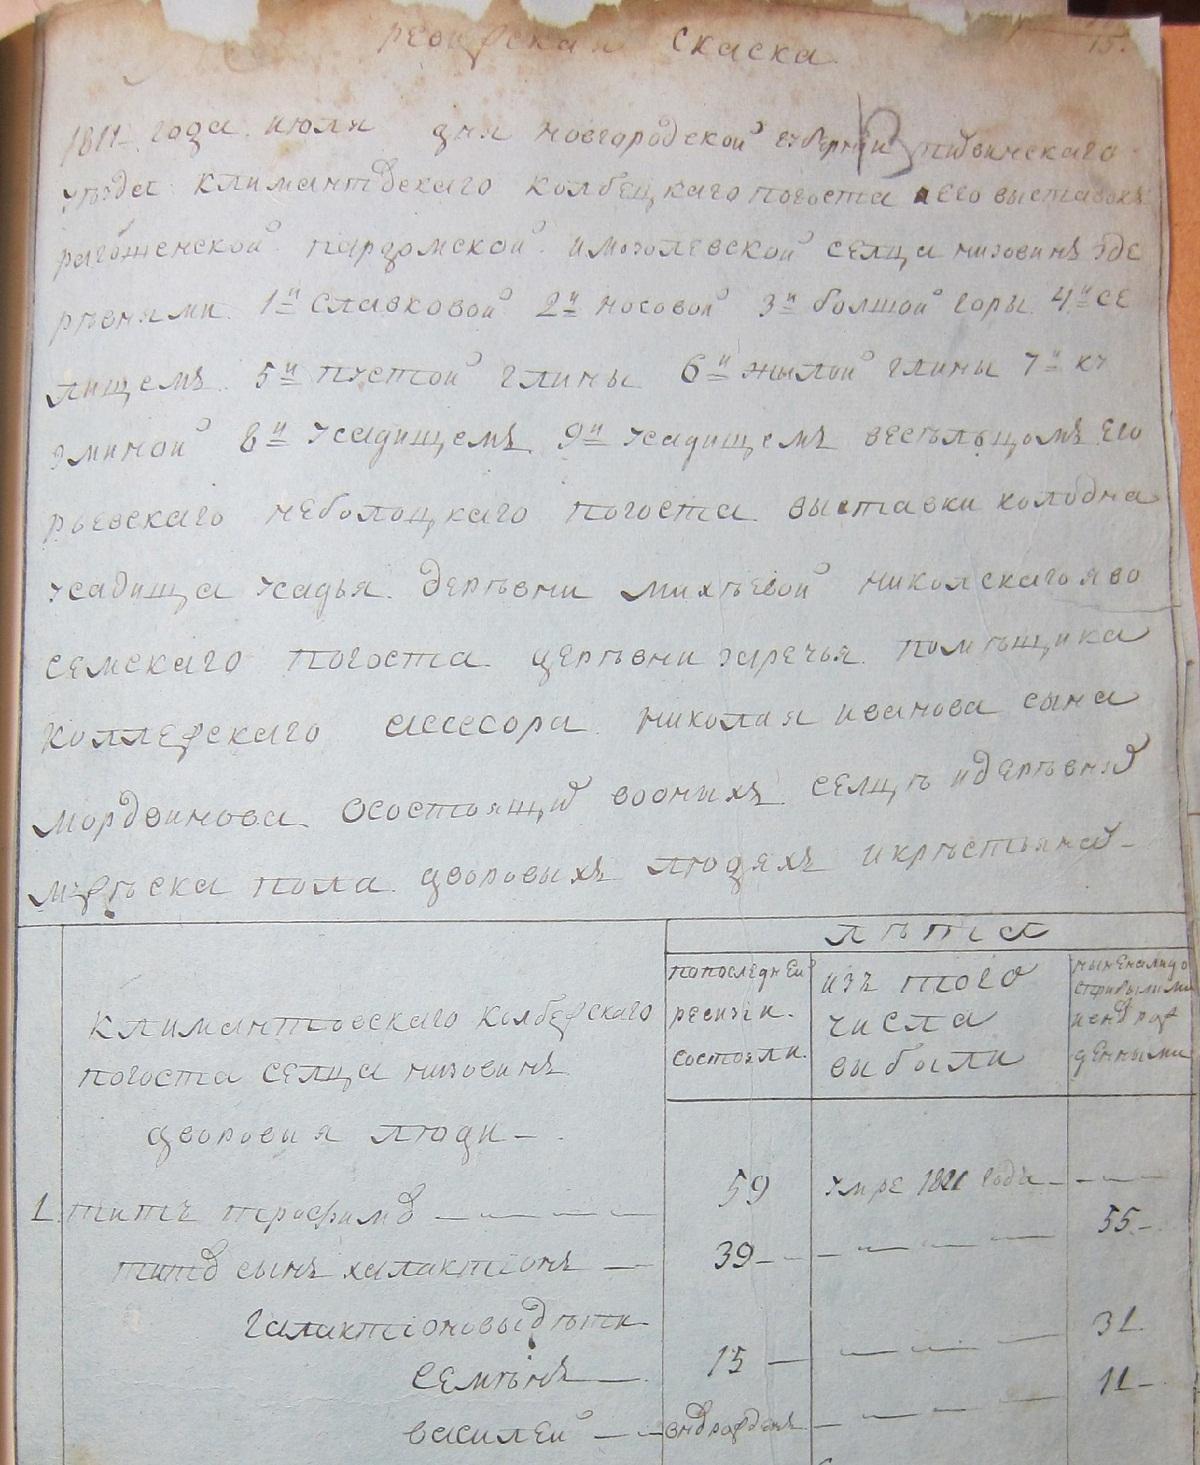 ревижская скаска
15.
1811 года июля дня новгородской губернии тихвинскаго
уѣзда климантовскаго колбецкаго погоста его выставокъ
рагошенской пардомской имозолевской селца низовинъ здe
ревнями 1й славковой 2й носовой 3й болшой горы 4й се
лищемъ 5й пустой глины 6й жылой глины 7й ку
зминой 8й усадищемъ 9й усадищемъ весѣлцомъ его
рьевскаго неболоцкаго погоста выставки колодна
усадища усадья деревни михѣевой николскагояво
семскаго погоста деревни заречья помѣщика
коллежскаго асесора николая иванова сына
мордвинова осостоящих вооныхъ селцѣ идеревнях
мужеска пола дворовыхъ людяхъ икрѣстьянах
лѣта
климантовскаго колбежскаго
погоста селца низовинъ
дворовыя люди
попоследней
ревизіи
состояли
изъ того
числа
выбыли
нынѣналицо
сприбылыми
ивновьрож
денными
1 титъ трофимов 59 умре 1811 года
титов сынъ халактіонъ 39 55
галактіоновыдѣти
семѣнъ 15 31
василей вновьрожденъ 11